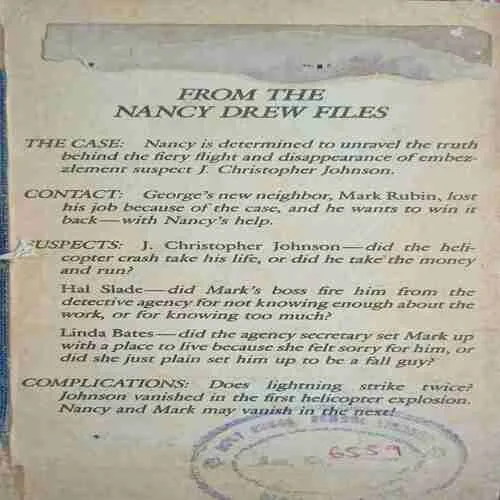 FROM THE
NANCY DREW FILES
THE CASE: Nancy is determined to unravel the truth
behind the fiery flight and disappearance of embez-
zlement suspect J. Christopher Johnson.
CONTACT: George's new neighbor, Mark Rubin, lost
his job because of the case, and he wants to win it
back—with Nancy's help.
SUSPECTS: J. Christopher Johnson—did the heli-
copter crash take his life, or did he take the money
and run?
Hal Slade—did Mark's boss fire him from the
detective agency for not knowing enough about the
work, or for knowing too much?
Linda Bates—did the agency secretary set Mark up
with a place to live because she felt sorry for him, or
did she just plain set him up to be a fall guy?
COMPLICATIONS: Does lightning strike twice?
Johnson vanished in the first helicopter explosion.
Nancy and Mark may vanish in the next!
6559